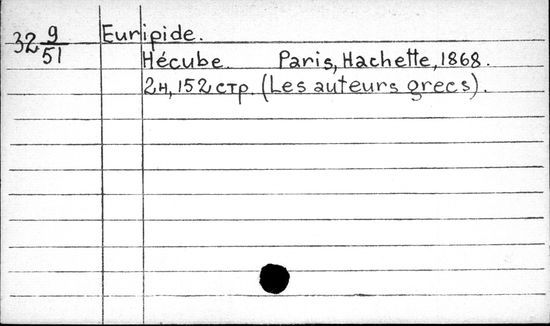 32 9/51 Euripide.
Hécube. Paris, Hachette, 1868.
2н, 152 стр. (Les auteurs grecs).